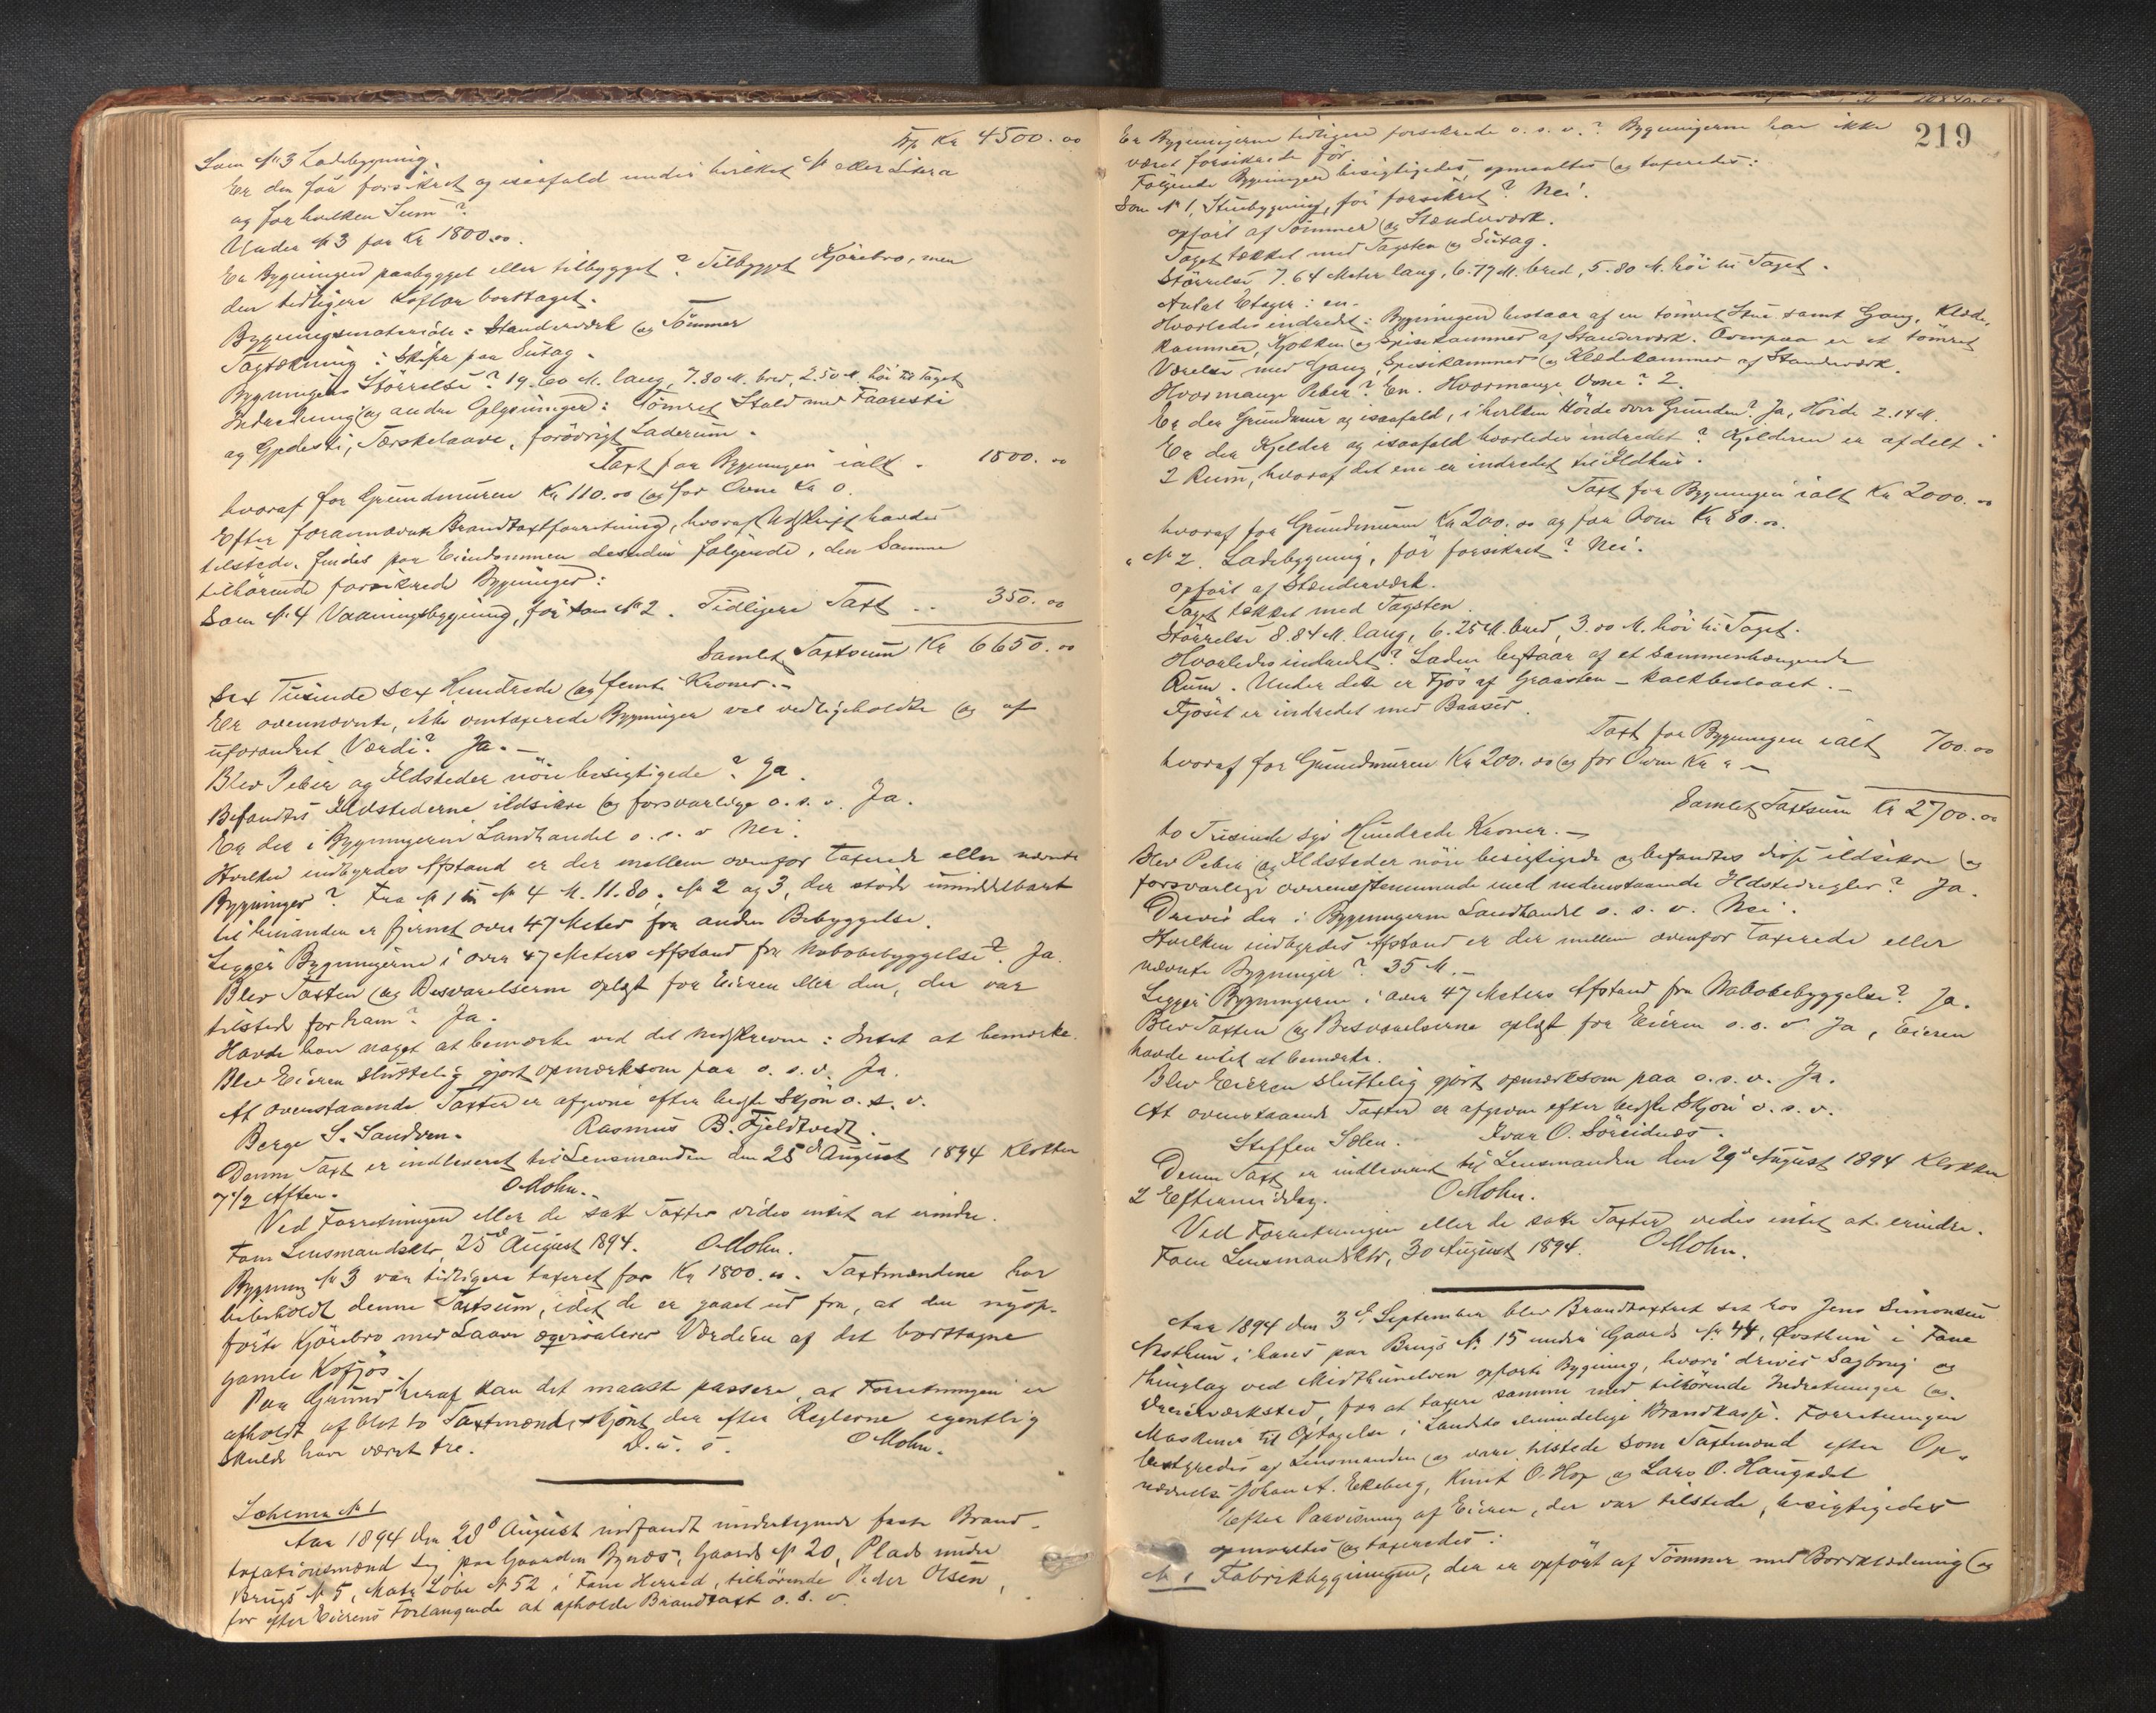 Trp Kr 4500.00
Som № 3 Ladebygning.
Er den før forsikret og isaafald under hvilket № eller Litera
og for hvilken Sum?
Under № 3 for Kr 1800.00.
Er Bygningen paabygget eller tilbygget? Tilbygget Kjørebro, men
den tidligere Kofjøs borttaget.
Bygningsmateriale: Standerværk og Tømmer
Tagtækning: Skifer paa Sutag.
Bygningens Størrelse? 19.60 M. lang, 7.80 M. bred, 2.50 M. høi til Taget
Indredning og andre Oplysninger: Tømret Stald med Faaresti
og Gjedesti, Tærskelaave, forøvrigt Laderum.
Taxt for Bygningen ialt. 1800.00
hvoraf for Grundmuren Kr 110.00 og for Ovne Kr 0.
Efter forannævnte Brandtaxtforretning, hvoraf Udskrift havdes
tilstede, findes paa Eiendommen desuden følgende, den Samme
tilhørende forsikrede Bygninger:
Som № 4 Vaaningsbygning, før som № 2. Tidligere Taxt .. 350.00
Samlet Taxtsum Kr 6650.00
Sex Tusinde sex Hundrede og femti Kroner.-
Er ovennævnte, ikke omtaxerede Bygninger vel vedligeholdte og af
uforandret Værdi? Ja.-
Blev Piber og Ildsteder nøie besigtigede? Ja.
Befandtes Ildstederne ildsikre og forsvarlige o. s. v. Ja.
Er der i Bygningerne Landhandel o. s. v Nei.
Hvilken indbyrdes Afstand er der mellem ovenfor taxerede eller nævnte
Bygninger? Fra № 1 til № 4 M. 11.80, № 2 og 3, der støder umiddelbart
til hinanden er fjernet over 47 Meter fra anden Bebyggelse.
Ligger Bygningerne i over 47 Meters Afstand fra Nabobebyggelse? Ja.
Blev Taxten og Besvarelserne oplæst for Eieren eller den, der var
tilstede for ham? Ja.
Havde han noget at bemærke ved det Nedskrevne: Intet at bemærke.
Blev Eieren sluttelig gjort opmærksom paa o. s. v. Ja.
At ovenstaaende Taxter er afgivne efter bedste Skjøn o. s. v.
Berge S. Sandven. Rasmus B. Fjeldtvedt.
Denne Taxt er indleveret til Lensmanden den 25de August 1894 Klokken
7 1/2 Aften. O Mohn.
Ved Forretningen eller de satte Taxter vides intet at erindre.
Fane Lensmandsktr, 25de August 1894. O Mohn.
Bygning № 3 var tidligere taxeret for Kr 1800.00. Taxtmændene har
bibeholdt denne Taxtsum, idet de er gaaet ud fra, at den nyop-
førte Kjørebro med Laave æqvivalerer Værdien af det borttagne
gamle Kofjøs.
Paa Grund heraf kan det maaske passere, at Forretningen er
afholdt af blot to Taxtmænd, skjønt der efter Reglerne egentlig
skulde have været tre. D. u. s. O Mohn.
Schema № 1
Aar 1894 den 28de August indfandt undertegnede faste Brand-
taxationsmænd sig paa Gaarden Bynæs, Gaards № 20, Plads under
Brugs № 5, Matr Løbe № 52 i Fane Herred, tilhørende Peder Olsen,
for efter Eierens Forlangende at afholde Brandtaxt o. s. v.
219
Er Bygningerne tidligere forsikrede o. s. v.? Bygningerne har ikke
været forsikrede før
Følgende Bygninger besigtigedes, opmaaltes og taxeredes:
Som № 1, Stuebygning, før forsikret? Nei.
opført af Tømmer og Standerværk.
Taget tækket med Tagsten og Sutag.
Størrelse 7.64 Meter lang, 6.79 M. bred, 5.80 M. høi til Taget.
Antal Etager: en.
Hvorledes indredet: Bygningen bestaar af en tømret Stue samt Gang, Klæde-
kammer, Kjøkken og Spisekammer af Standerværk. Ovenpaa er et tømret
Værelse med Gang, Spisekammer og Klædekammer af Standerværk.
Hvormange Piber? En. Hvormange Ovne? 2.
Er der Grundmur og isaafald, i hvilken Høide over Grunden? Ja, Høide 2.14 M.
Er der Kjelder og isaafald hvorledes indredet? Kjelderen er afdelt i
2 Rum, hvoraf det ene er indredet til Ildhus.
Taxt for Bygningen ialt Kr 2000.00
hvoraf for Grundmuren Kr 200.00 og for Ovne Kr 80.00.
" № 2. Ladebygning, før forsikret? Nei.
opført af Standerværk.
Taget tækket med Tagsten.
Størrelse 8.84 M. lang, 6.25 M. bred, 3.00 M. høi til Taget.
Hvorledes indredet? Laden bestaar af et sammenhængende
Rum. Under dette er Fjøs af Graasten - kalkbeslaaet.-
Fjøset er indredet med Baaser.
Taxt for Bygningen ialt 700.00
hvoraf for Grundmuren Kr 200.00 og for Ovne Kr " -
Samlet Taxtsum Kr 2700.00
to Tusinde syv Hundrede Kroner.-
Blev Piber og Ildsteder nøie besigtigede og befandtes disse ildsikre og
forsvarlige overensstemmende med nedenstaaende Ildstedregler? Ja.
Drives der i Bygningerne Landhandel o. s. v. Nei.
Hvilken indbyrdes Afstand er der mellem ovenfor taxerede eller
nævnte Bygninger? 35 M.-
Ligger Bygningerne i over 47 Meters Afstand fra Nabobebyggelse? Ja.
Blev Taxten og Besvarelserne oplæst for Eieren o. s. v Ja, Eieren
havde intet at bemærke.
Blev Eieren sluttelig gjort opmærksom paa o. s. v. Ja.
At ovenstaaende Taxter er afgivne efter bedste Skjøn o. s. v.
Steffen Sælen. Ivar O. Søreidnæs.
Denne Taxt er indleveret til Lensmanden den 29de August 1894 Klokken
2 Eftermiddag. O Mohn.
Ved Forretningen eller de satte Taxter vides intet at erindre.
Fane Lensmandsktr, 30 August 1894. O Mohn.
Aar 1894 den 3de September blev Brandtaxtret sat hos Jens Simonsen
Nesthun i hans paa Brugs № 15 under Gaards № 44, Øvsthun i Fane
Thinglag ved Midthunelven opførte Bygning, hvori drives Sagbrug og
Dreierværksted, for at taxere samme med tilhørende Indretninger og
Maskiner til Optagelse i Landets almindelige Brandkasse. Forretningen
bestyredes af Lensmanden og vare tilstede som Taxtmænd efter Op-
nævnelse Johan A. Ekeberg, Knut O. Hop og Lars O. Haugsdal
Efter Paavisning af Eieren, der var tilstede, besigtigedes
opmaaltes og taxeredes:
№ 1 Fabrikbygningen, der er opført af Tømmer med Bordklædning og